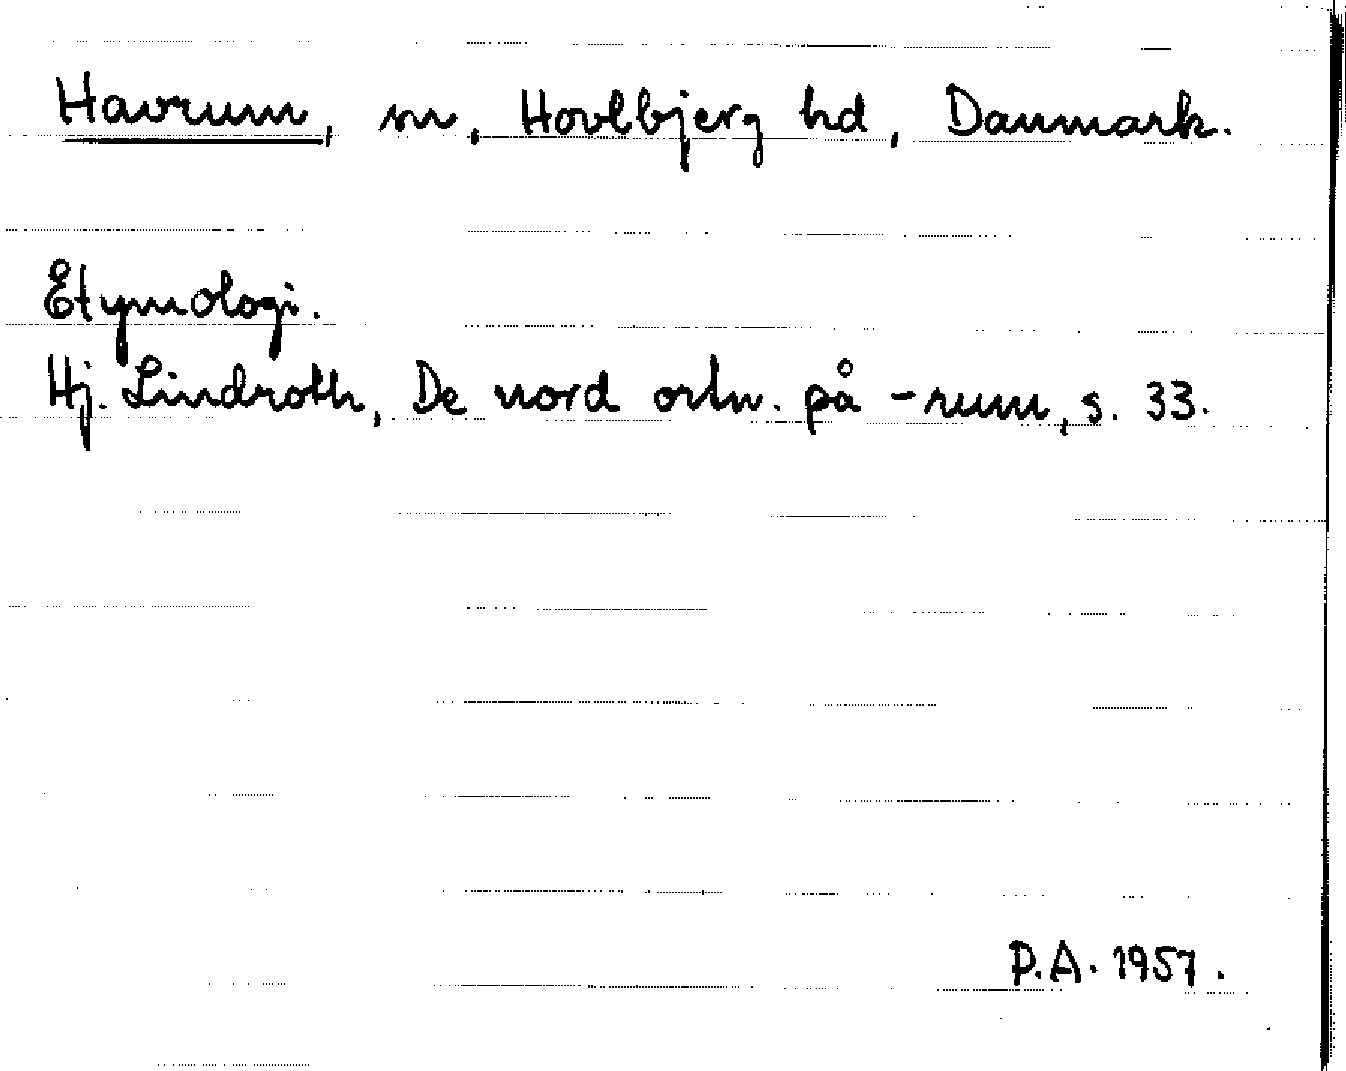 Havrum, sn, Hovlbjerg hd, Danmark.
Etymologi.
Hj. Lindroth, De nord ortn. på -rum, s. 33.
P.A. 1957.